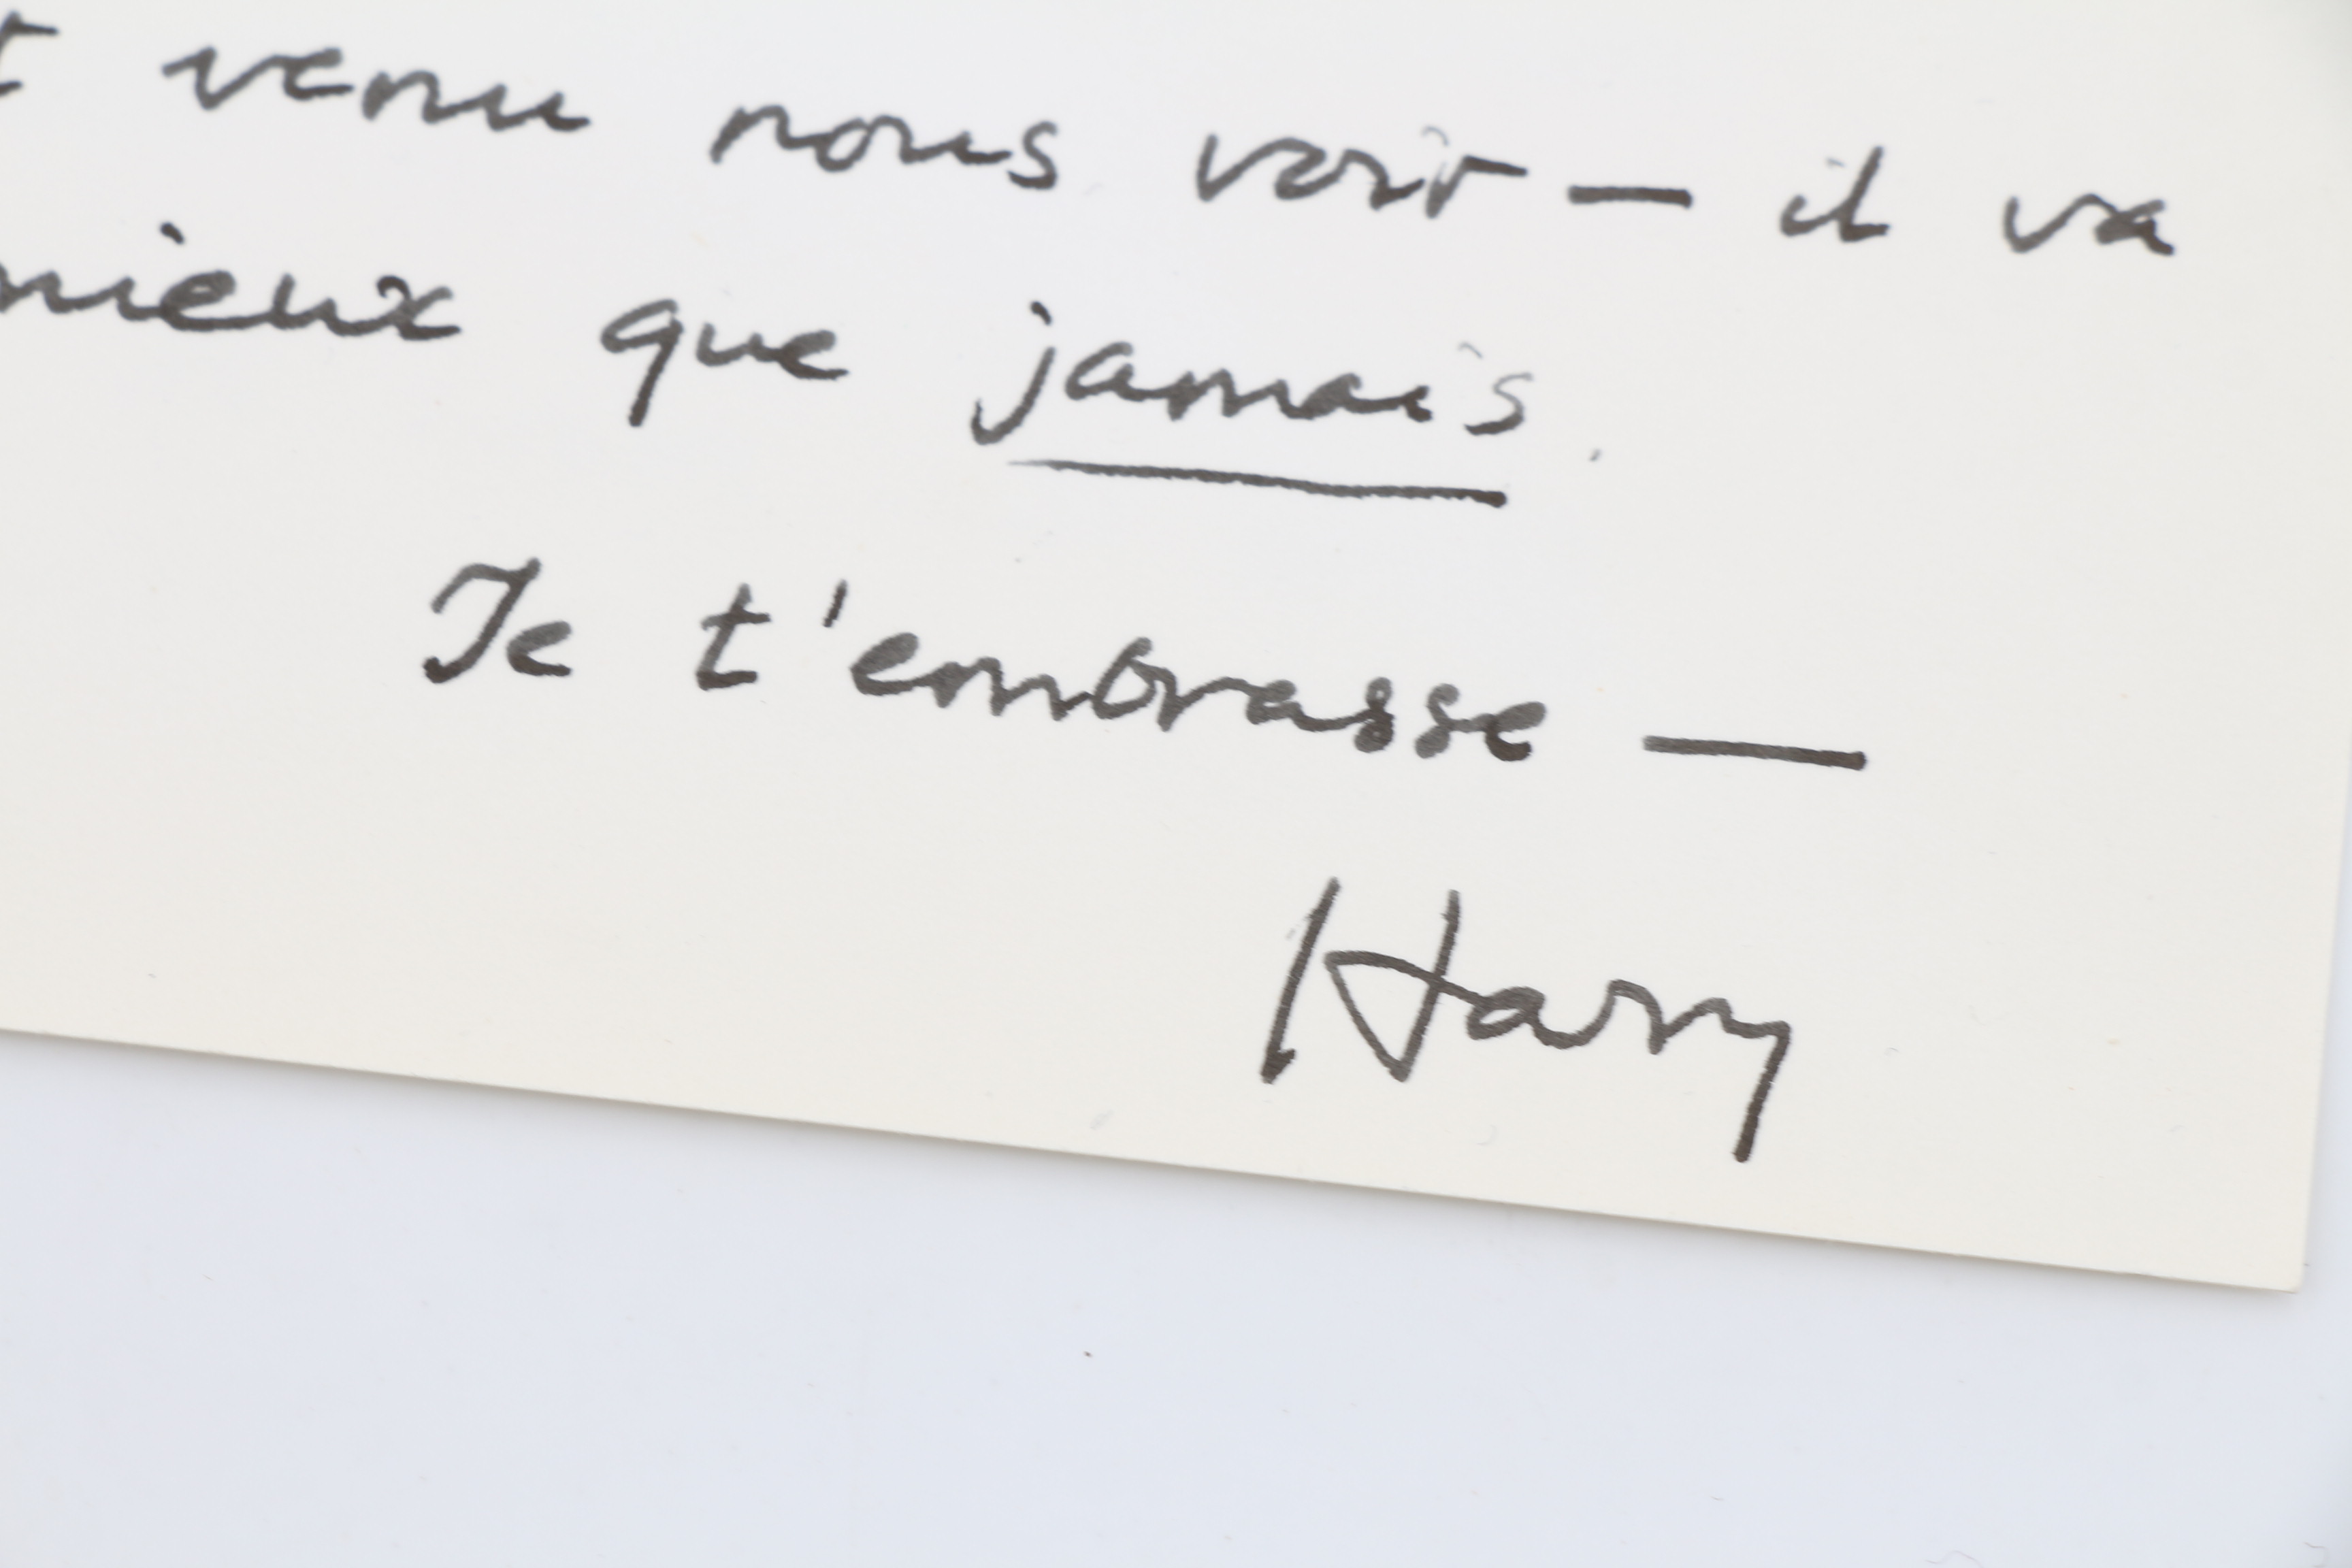 t venu nous voir — il va
mieux que jamais.
Je t'embrasse —
Harry